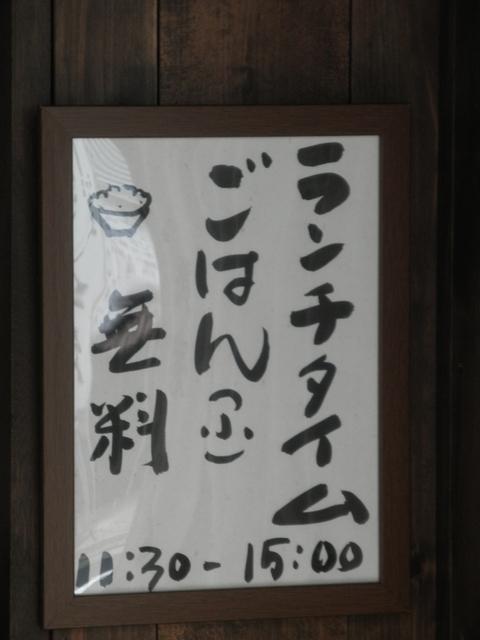 ランチタイム
ごはん(小)
無料
11:30-15:00